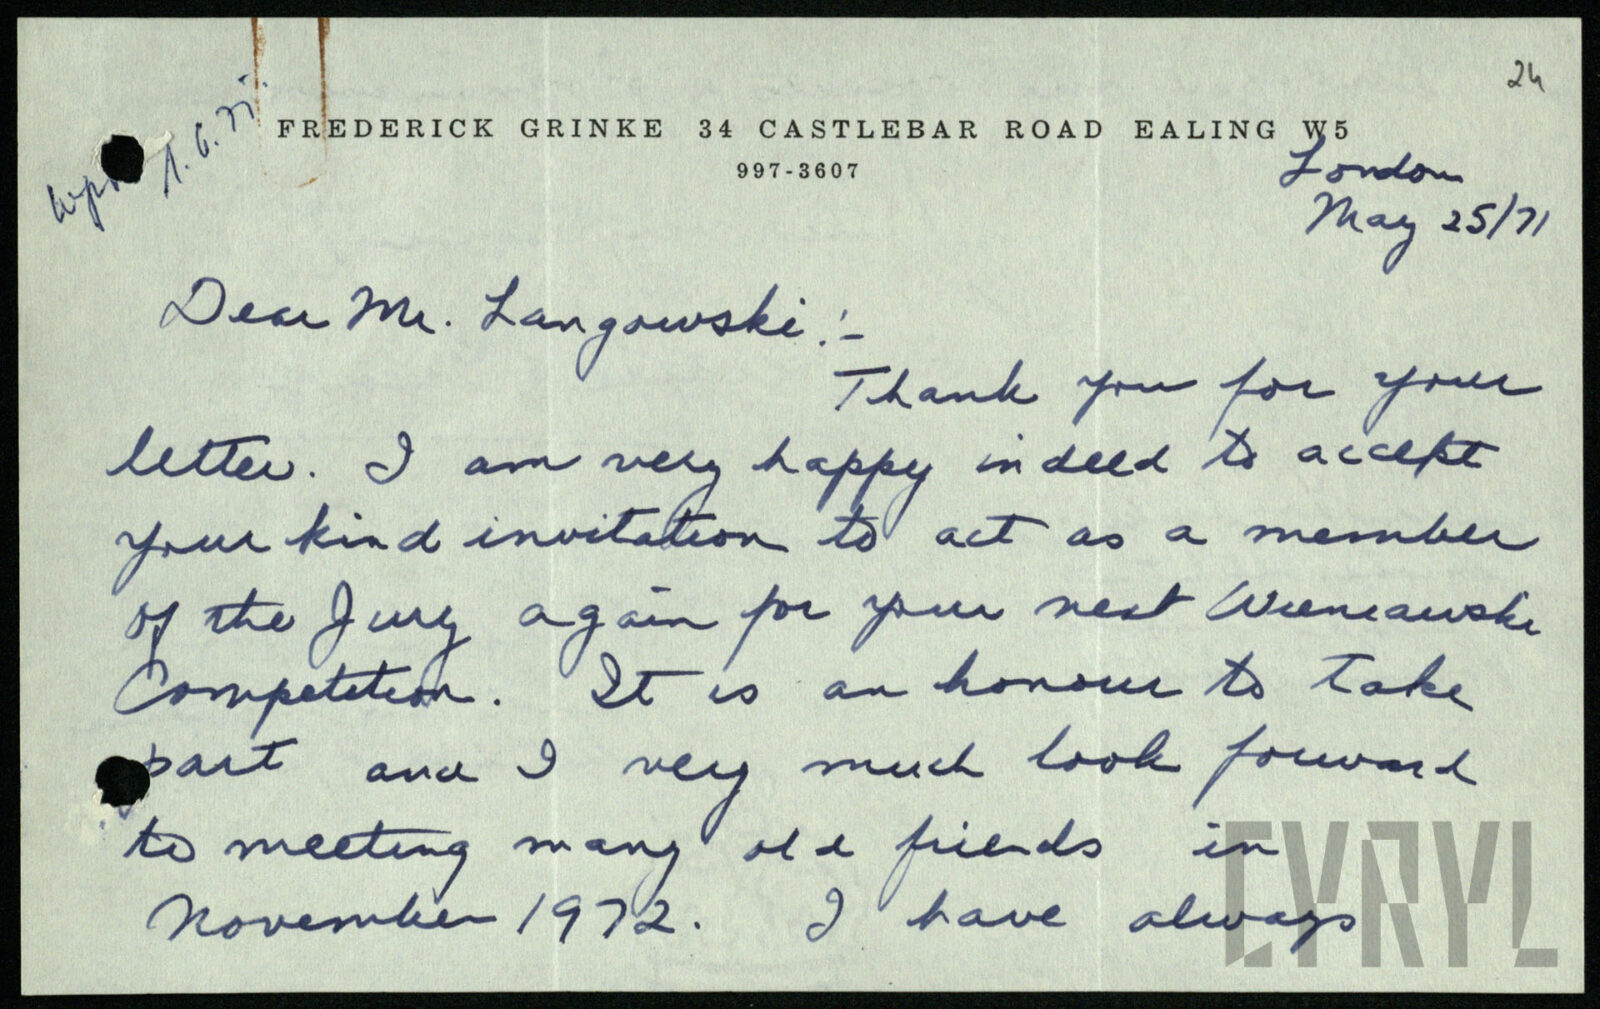 24
FREDERICK GRINKE 34 CASTLEBAR ROAD EALING W5
997-3607
1.6.71.
London
May 25/71
Dear Mr. Langowski:-
Thank you for your
letter. I am very happy indeed to accept
your kind invitation to act as a member
of the Jury again for your next Wieniawski
Competition. It is an honour to take
part and I very much look forward
to meeting many old friends in
November 1972. I have always
CYRYL